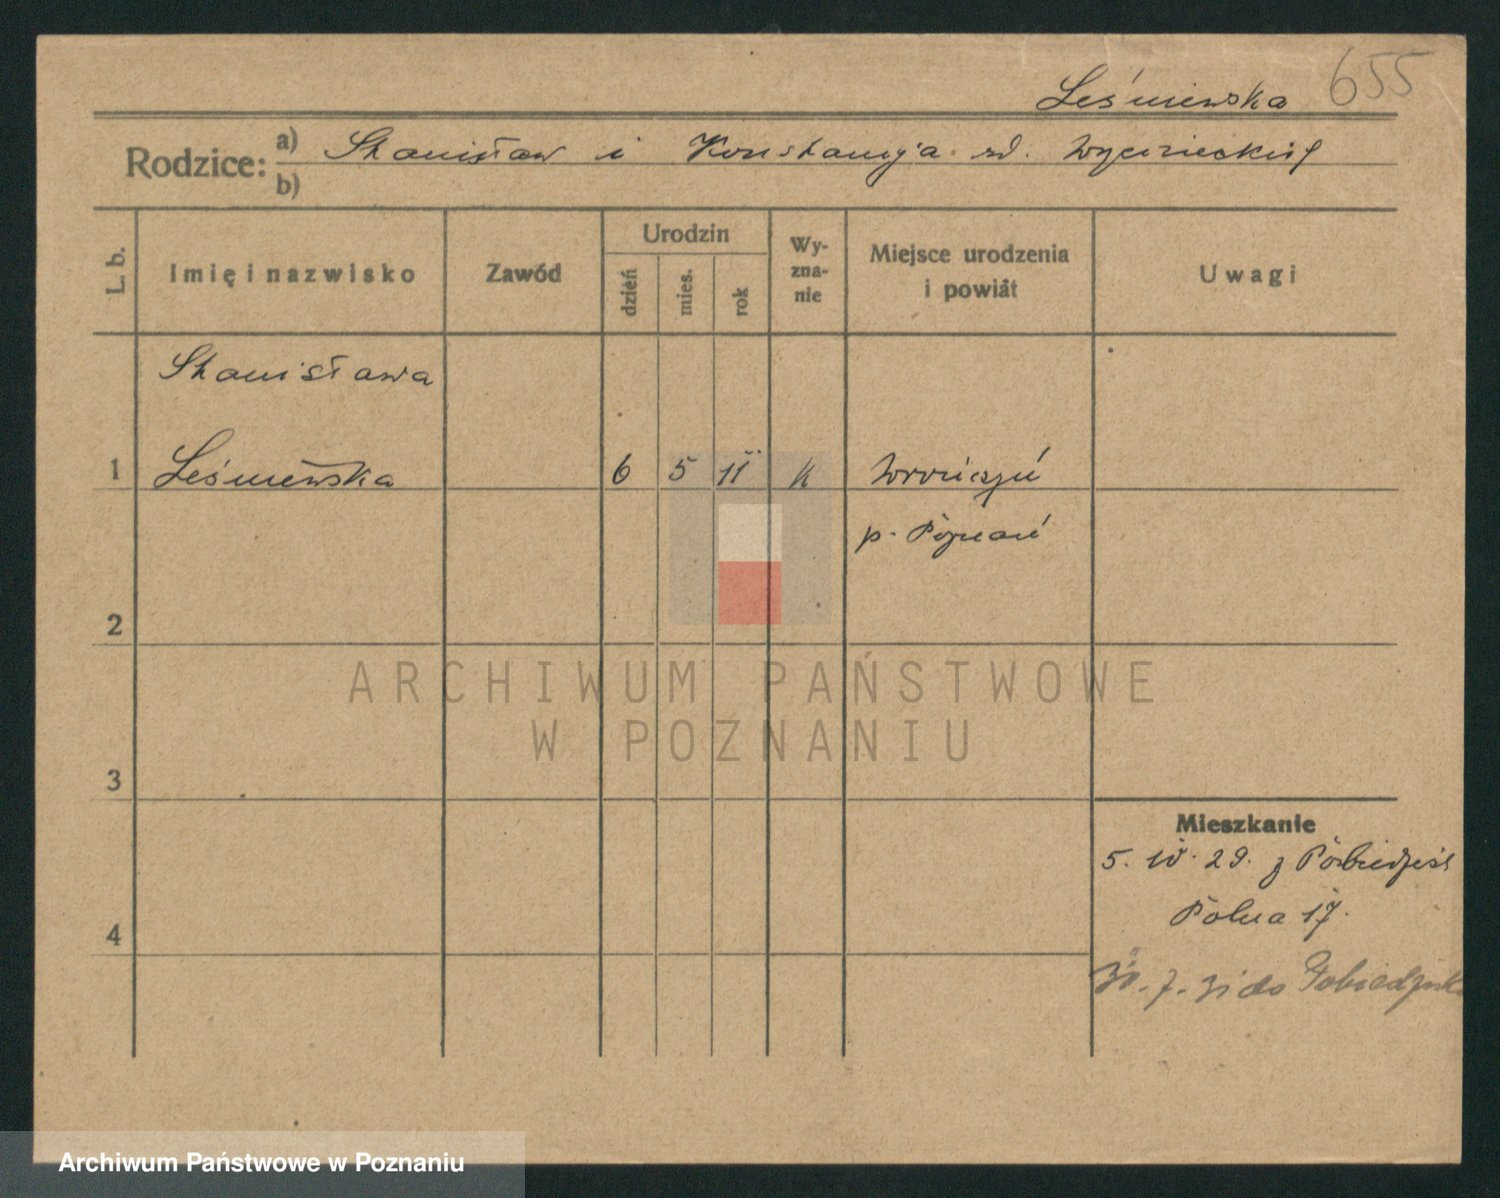 Leśniewska 655
Rodzice: a) Stanisław i Konstancja
b)
L. b.
Imię i nazwisko
Zawód
Urodzin
dzień
mies.
rok
Wy-
zna-
nie
Miejsce urodzenia
i powiat
Uwagi
Stanisława
1 Leśniewska 6 5 11 k
p. Poznań
2
3
4
Mieszkanie
5. IV. 29. z Pobiedzisk
Polna 17.
30. 7. 31 do Pobiedzisk
ARCHIWUM PAŃSTWOWE
W POZNANIU
Archiwum Państwowe w Poznaniu